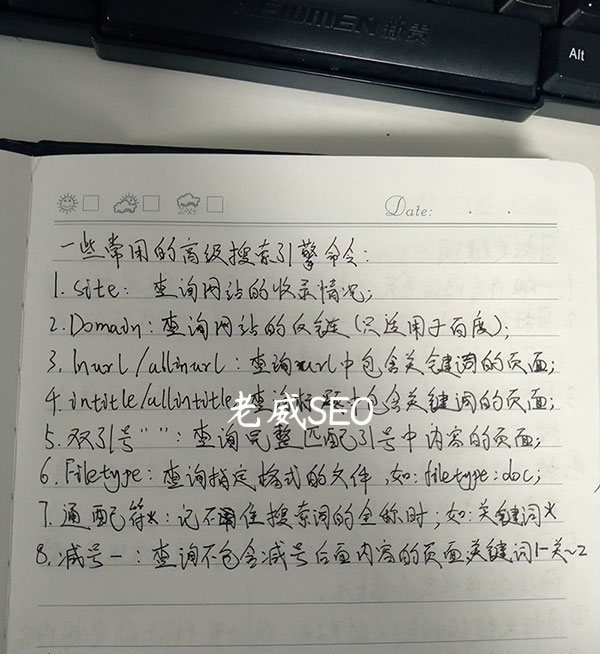 NEWMEN 新贵
Alt
Date: . .
一些常用的高级搜索引擎命令:
1. site: 查询网站的收录情况;
2. Domain: 查询网站的反链(只适用于百度);
3. Inurl/allinurl: 查询url中包含关键词的页面;
4. intitle/allintitle: 查询标题中包含关键词的页面;
老威SEO
5. 双引号“ ”: 查询完整匹配引号中内容的页面;
6. Filetype: 查询指定格式的文件,如: filetype:doc;
7. 通配符*: 记不住搜索词的全称时; 如: 关键词*
8. 减号-: 查询不包含减号后面内容的页面 关键词1-关~2